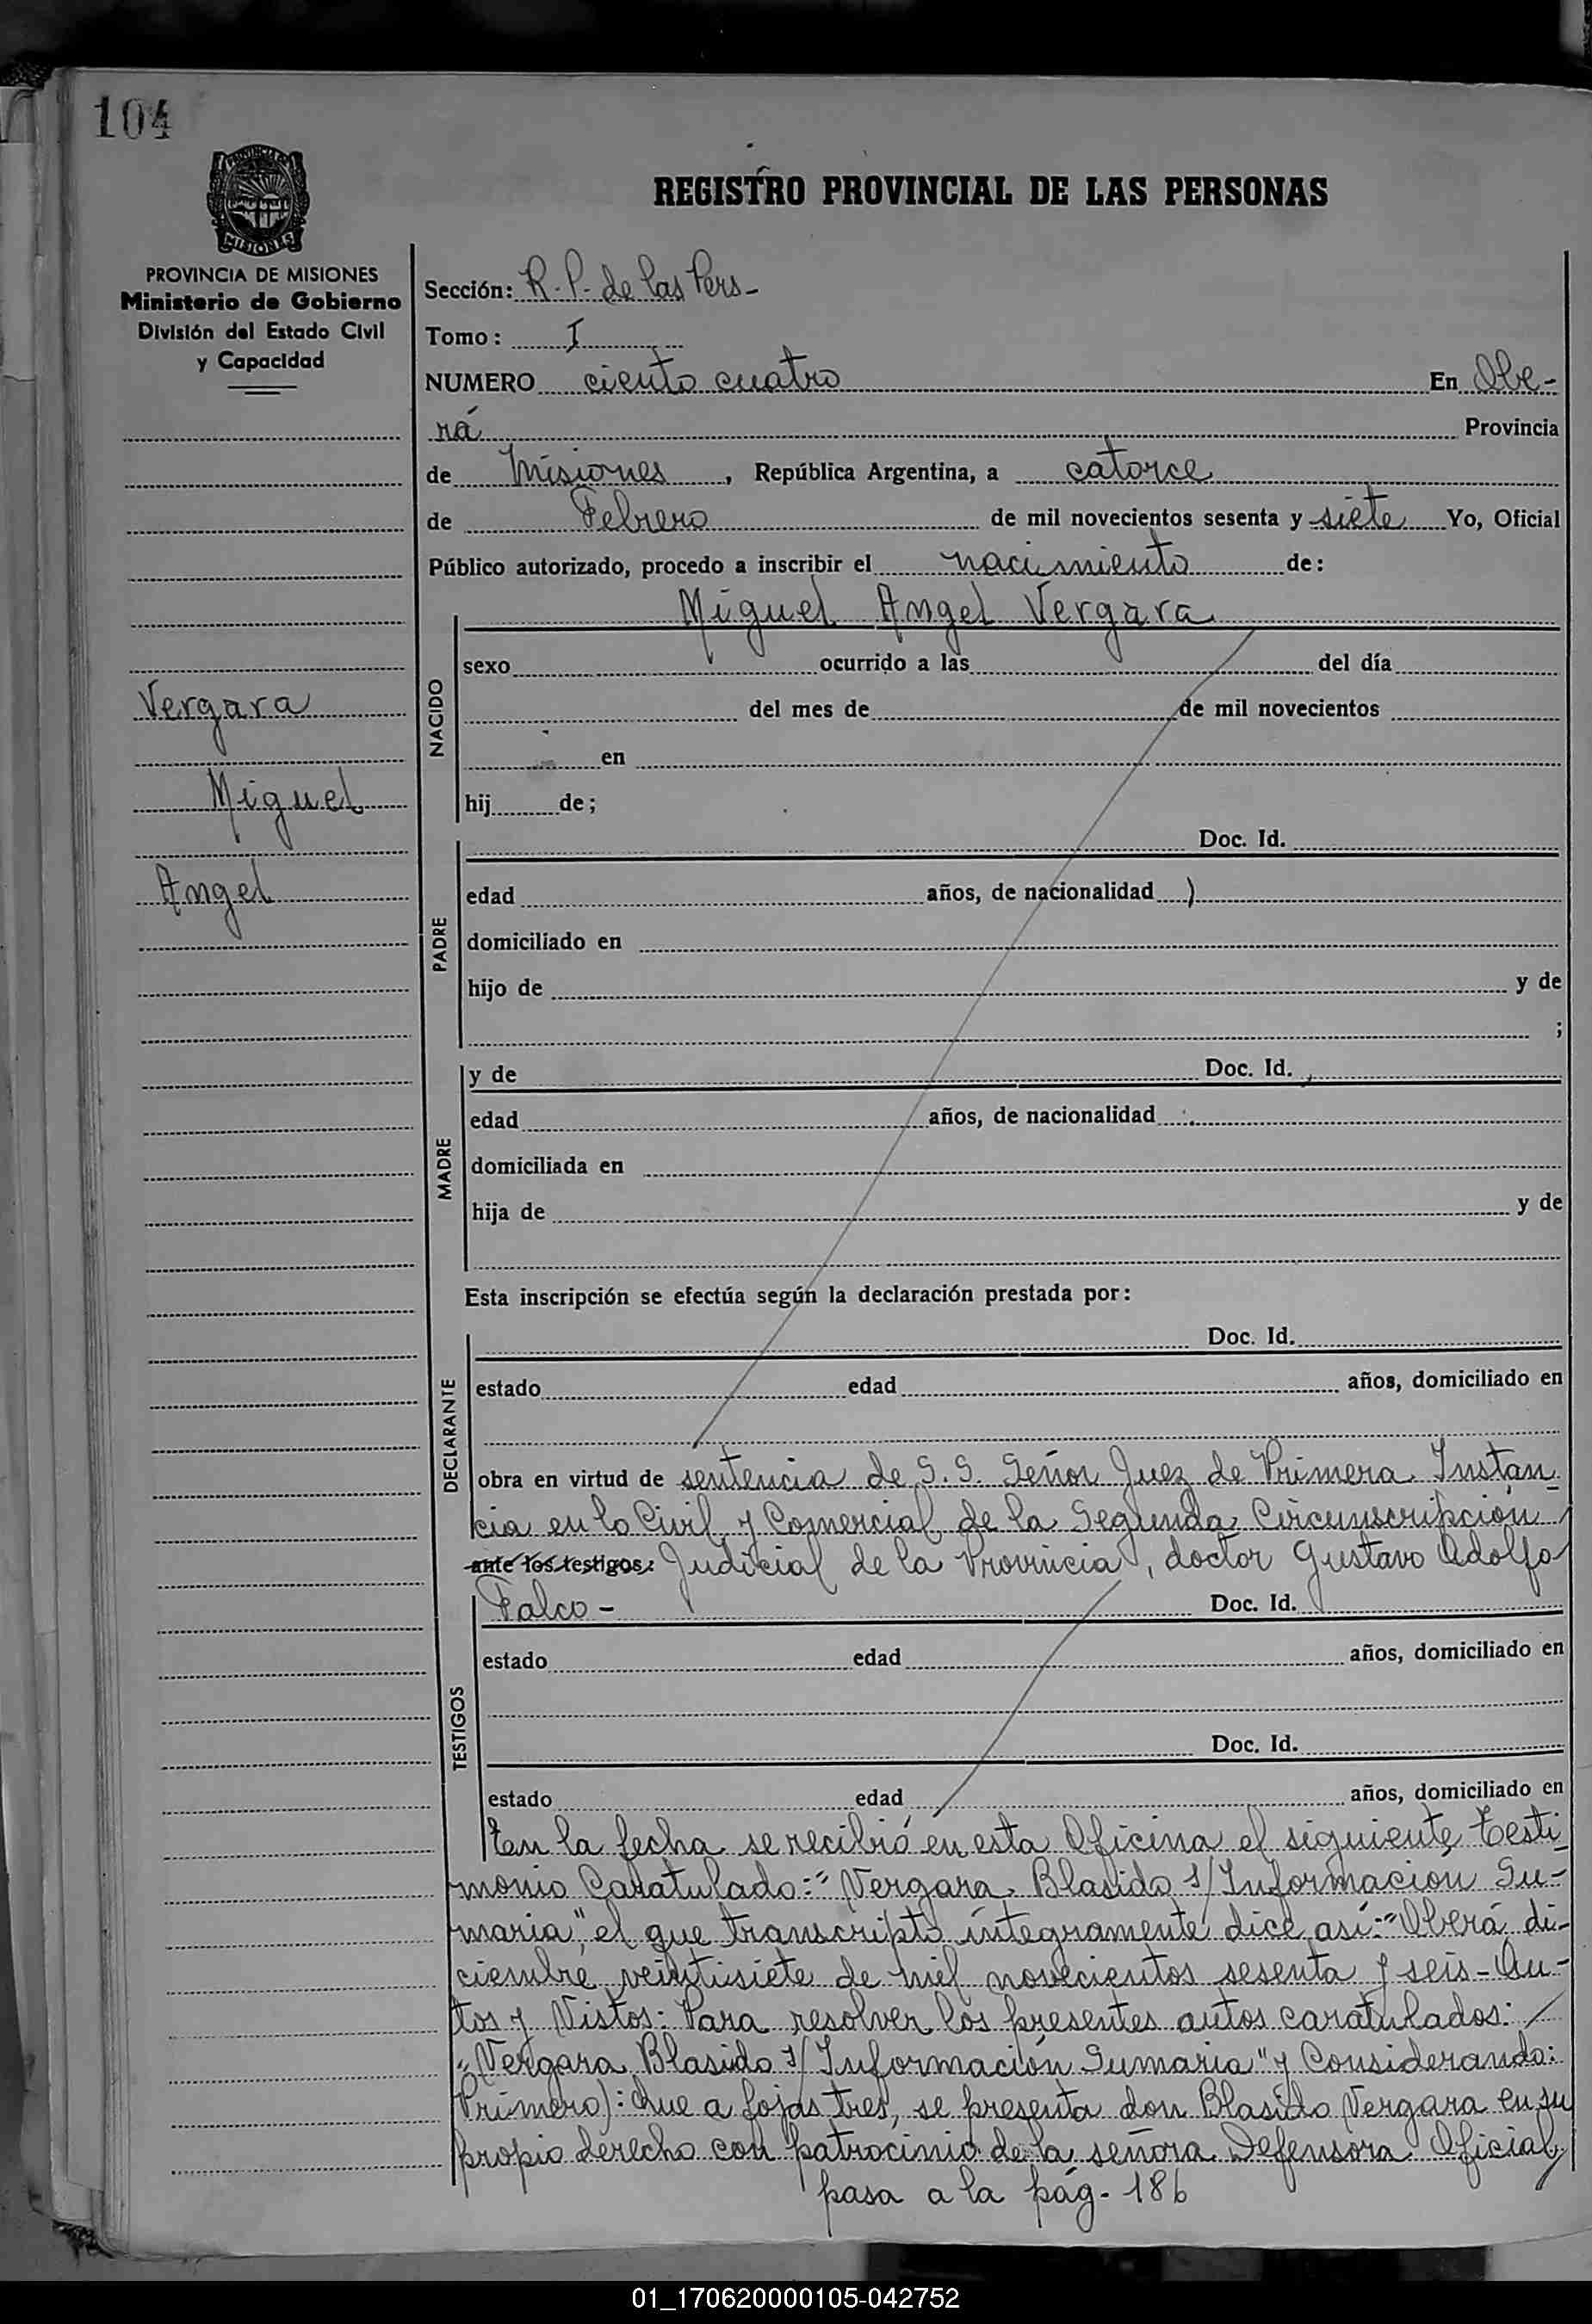 104
REGISTRO PROVINCIAL DE LAS PERSONAS
PROVINCIA DE
MISIONES
PROVINCIA DE MISIONES
Ministerio de Gobierno
División del Estado Civil
y Capacidad
Vergara
Miguel
Angel
Sección: R.P. de las Pers-
Tomo: I
NUMERO ciento cuatro En Obe-
rá Provincia
de Misiones, República Argentina, a catorce
de Febrero de mil novecientos sesenta y siete Yo, Oficial
Público autorizado, procedo a inscribir el nacimiento de:
Miguel Angel Vergara
NACIDO
sexo ocurrido a las del día
del mes de de mil novecientos
en
hij de;
PADRE
Doc. Id.
edad años, de nacionalidad )
domiciliado en
hijo de y de
;
MADRE
y de Doc. Id.
edad años, de nacionalidad
domiciliada en
hija de y de
Esta inscripción se efectúa según la declaración prestada por:
DECLARANTE
Doc. Id.
estado edad años, domiciliado en
obra en virtud de sentencia de S.S. Señor Juez de Primera Instan_
cia en lo Civil y Comercial de la Segunda Circunscripción
ante los testigos: Judicial de la Provincia, doctor Gustavo Adolfo
TESTIGOS
Falco - Doc. Id.
estado edad años, domiciliado en
Doc. Id.
estado edad años, domiciliado en
En la fecha se recibió en esta Oficina el siguiente Testi_
monio Caratulado: "Vergara Blasido s/Información Su-
maria", el que transcripto íntegramente dice así: "Oberá di-
ciembre veintisiete de mil novecientos sesenta y seis - Au-
tos y Vistos: Para resolver los presentes autos caratulados: /
"Vergara Blasido s/Información Sumaria" y Considerando:
Primero): Que a fojas tres, se presenta don Blasido Vergara en su
propio derecho con patrocinio de la señora Defensora Oficial
pasa a la pág - 186
01_170620000105-042752